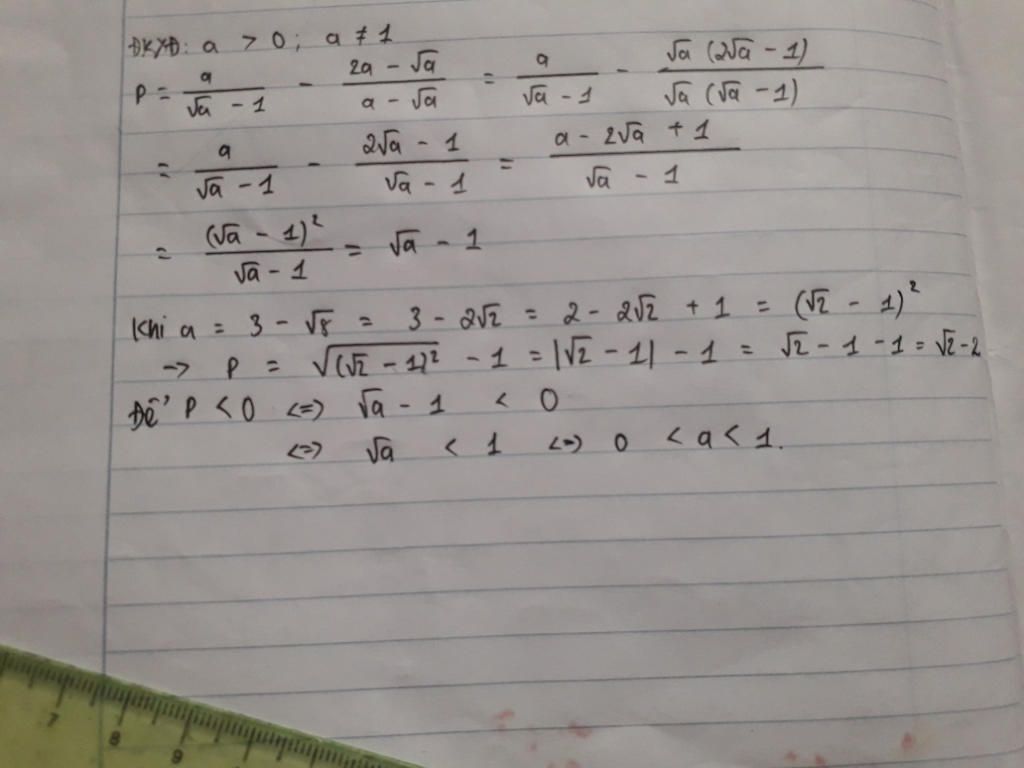 ĐKXĐ: a > 0; a ≠ 1
P = a/(√a - 1) - (2a - √a)/(a - √a) = a/(√a - 1) - √a(2√a - 1)/(√a(√a - 1))
= a/(√a - 1) - (2√a - 1)/(√a - 1) = (a - 2√a + 1)/(√a - 1)
= (√a - 1)²/(√a - 1) = √a - 1
Khi a = 3 - √8 = 3 - 2√2 = 2 - 2√2 + 1 = (√2 - 1)²
-> P = √((√2 - 1)²) - 1 = |√2 - 1| - 1 = √2 - 1 - 1 = √2 - 2
Để P < 0 <=> √a - 1 < 0
<=> √a < 1 <=> 0 < a < 1.
7 8 9